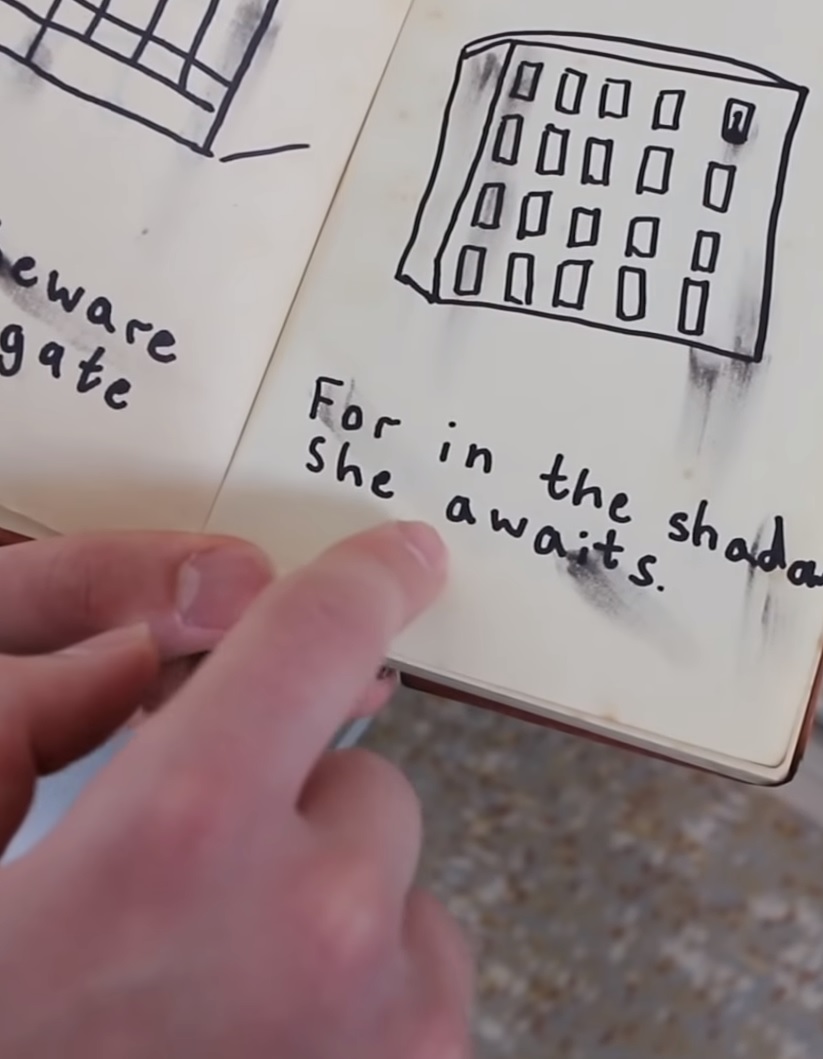 eware
gate
For in the shado
She awaits.